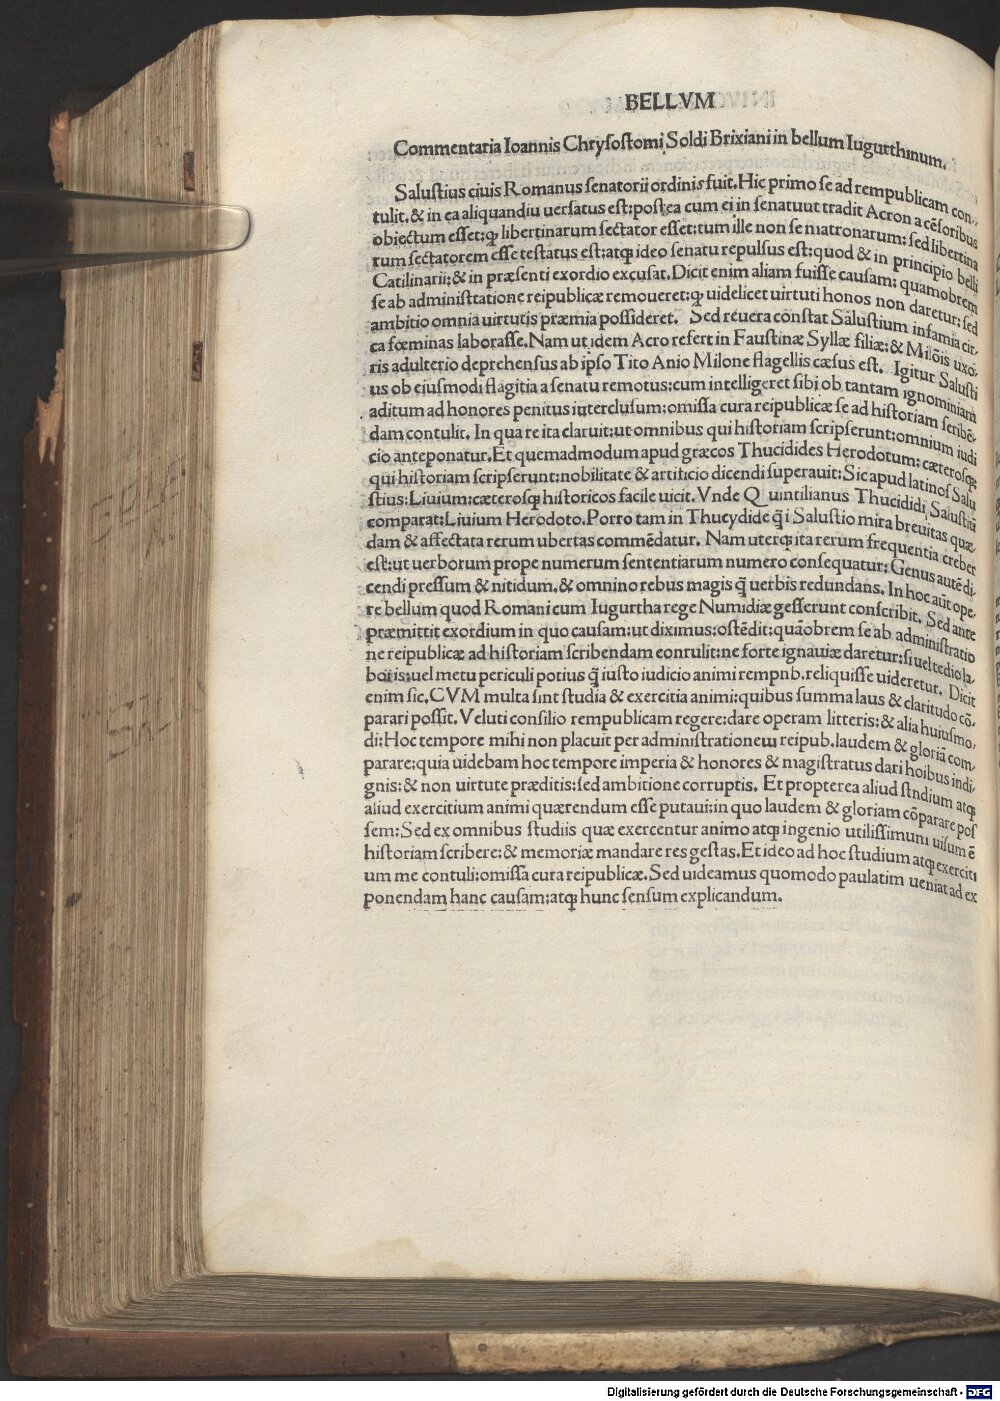 BELLVM
Commentaria Ioannis Chrysostomi Soldi Brixiani in bellum Iugurthinum.
Salustius ciuis Romanus senatorii ordinis fuit. Hic primo se ad rempublicam con-
tulit. & in ea aliquandiu uersatus est: postea cum ei in senatu ut tradit Acron a cẽsoribus
obiectum esset: ꝙ libertinarum sectator esset: tum ille non se matronarum: sed libertina
rum sectatorem esse testatus est: atqꝫ ideo senatu repulsus est: quod & in principio belli
Catilinarii: & in præsenti exordio excusat. Dicit enim aliam fuisse causam: quamobrem
se ab administtatione reipublicæ remoueret: ꝙ uidelicet uirtuti honos non daretur: sed
ambitio omnia uirtutis præmia possideret. Sed reuera constat Salustium infamia cir-
ca fœminas laborasse. Nam ut idem Acro refert in Faustinæ Syllæ filiæ: & Milõis uxo-
ris adulterio deprehensus ab ipso Tito Anio Milone flagellis cæsus est. Igitur Salusti
us ob eiusmodi flagitia a senatu remotus: cum intelligeret sibi ob tantam ignominiam
aditum ad honores penitus iuterclusum: omissa cura reipublicæ se ad historiam scribẽ-
dam contulit. In qua re ita claruit: ut omnibus qui historiam scripserunt: omnium iudi
cio anteponatur. Et quemadmodum apud græcos Thucidides Herodotum: cæterosqꝫ
qui historiam scripserunt: nobilitate & artificio dicendi superauit: Sic apud latinos Salu
stius: Liuium: cæterosqꝫ historicos facile uicit. Vnde Q uintilianus Thucididi Salustiũ
comparat: Liuium Herodoto. Porro tam in Thucydide q̃ i Salustio mira breuitas quæ-
dam & affectata rerum ubertas commẽdatur. Nam uterqꝫ ita rerum frequentia creber
est: ut uerborum prope numerum sententiarum numero consequatur: Genus autẽ di-
cendi pressum & nitidum. & omnino rebus magis q̃ uerbis redundans. In hoc aũt ope-
re bellum quod Romani cum Iugurtha rege Numidiæ gesserunt conscribit. Sed ante
præmittit exordium in quo causam: ut diximus: ostẽdit: quãobrem se ab administratio
ne reipublicæ ad historiam scribendam contulit: ne forte ignauiæ daretur: si uel tedio la-
boris: uel metu periculi potius q̃ iusto iudicio animi rempub. reliquisse uideretur. Dicit
enim sic. CVM multa sint studia & exercitia animi: quibus summa laus & claritudo cõ-
parari possit. Veluti consilio rempublicam regere: dare operam litteris: & alia huiusmo-
di: Hoc tempore mihi non placuit per administrationem reipub. laudem & gloriã com-
parare: quia uidebam hoc tempore imperia & honores & magistratus dari hoibus indi-
gnis: & non uirtute præditis: sed ambitione corruptis. Et propterea aliud stndium atqꝫ
aliud exercitium animi quærendum esse putaui: in quo laudem & gloriam cõparare pos
sem: Sed ex omnibus studiis quæ exercentur animo atqꝫ ingenio utilissimum uisum ẽ
historiam scribere: & memoriæ mandare res gestas. Et ideo ad hoc studium atqꝫ exerciti
um me contuli: omissa cura reipublicæ. Sed uideamus quomodo paulatim ueniat ad ex
ponendam hanc causam: atqꝫ hunc sensum explicandum.
Digitalisierung gefördert durch die Deutsche Forschungsgemeinschaft - DFG